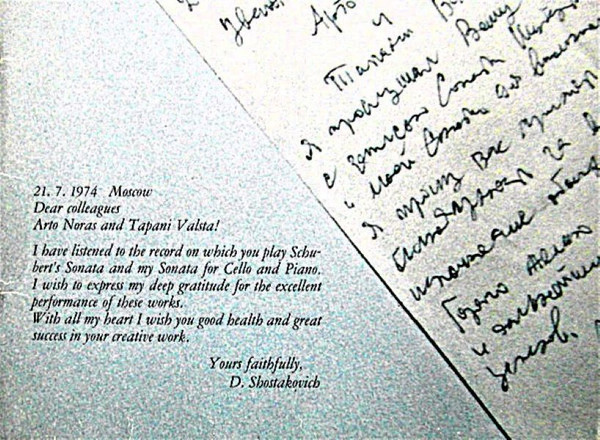 21. 7. 1974 Moscow
Dear colleagues
Arto Noras and Tapani Valsta!
I have listened to the record on which you play Schu-
bert's Sonata and my Sonata for Cello and Piano.
I wish to express my deep gratitude for the excellent
performance of these works.
With all my heart I wish you good health and great
success in your creative work.
Yours faithfully,
D. Shostakovich
Арто
и
Тапани
Я прослушал Вашу
с записью Сонаты
и моей Сонаты для
Я прошу Вас
за
исполнение
Горячо желаю
и
успехов.